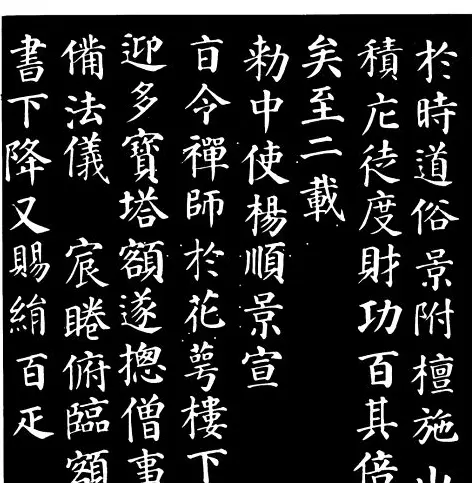 於時道俗景附檀施山
積庀徒度財功百其倍
矣至二載
勅中使楊順景宣
旨令禪師於花萼樓下
迎多寶塔額遂摠僧事
備法儀　宸睠俯臨額
書下降又賜絹百疋